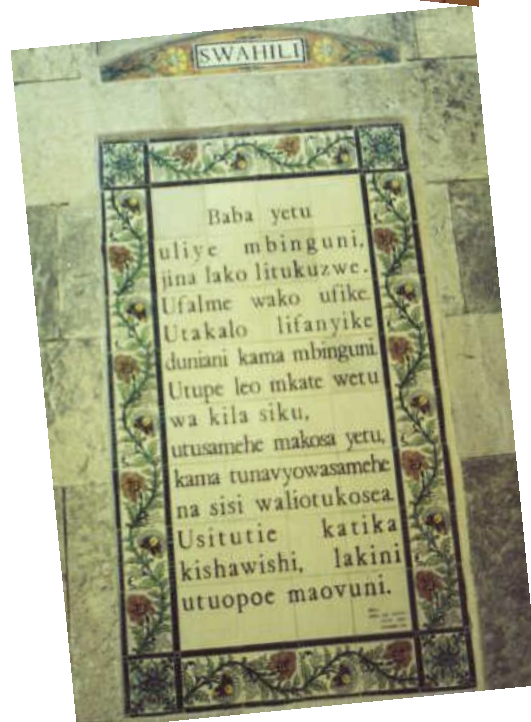 SWAHILI
Baba yetu
uliye mbinguni,
jina lako litukuzwe.
Ufalme wako ufike.
Utakalo lifanyike
duniani kama mbinguni.
Utupe leo mkate wetu
wa kila siku,
utusamehe makosa yetu,
kama tunavyowasamehe
na sisi waliotukosea.
Usitutie katika
kishawishi, lakini
utuopoe maovuni.